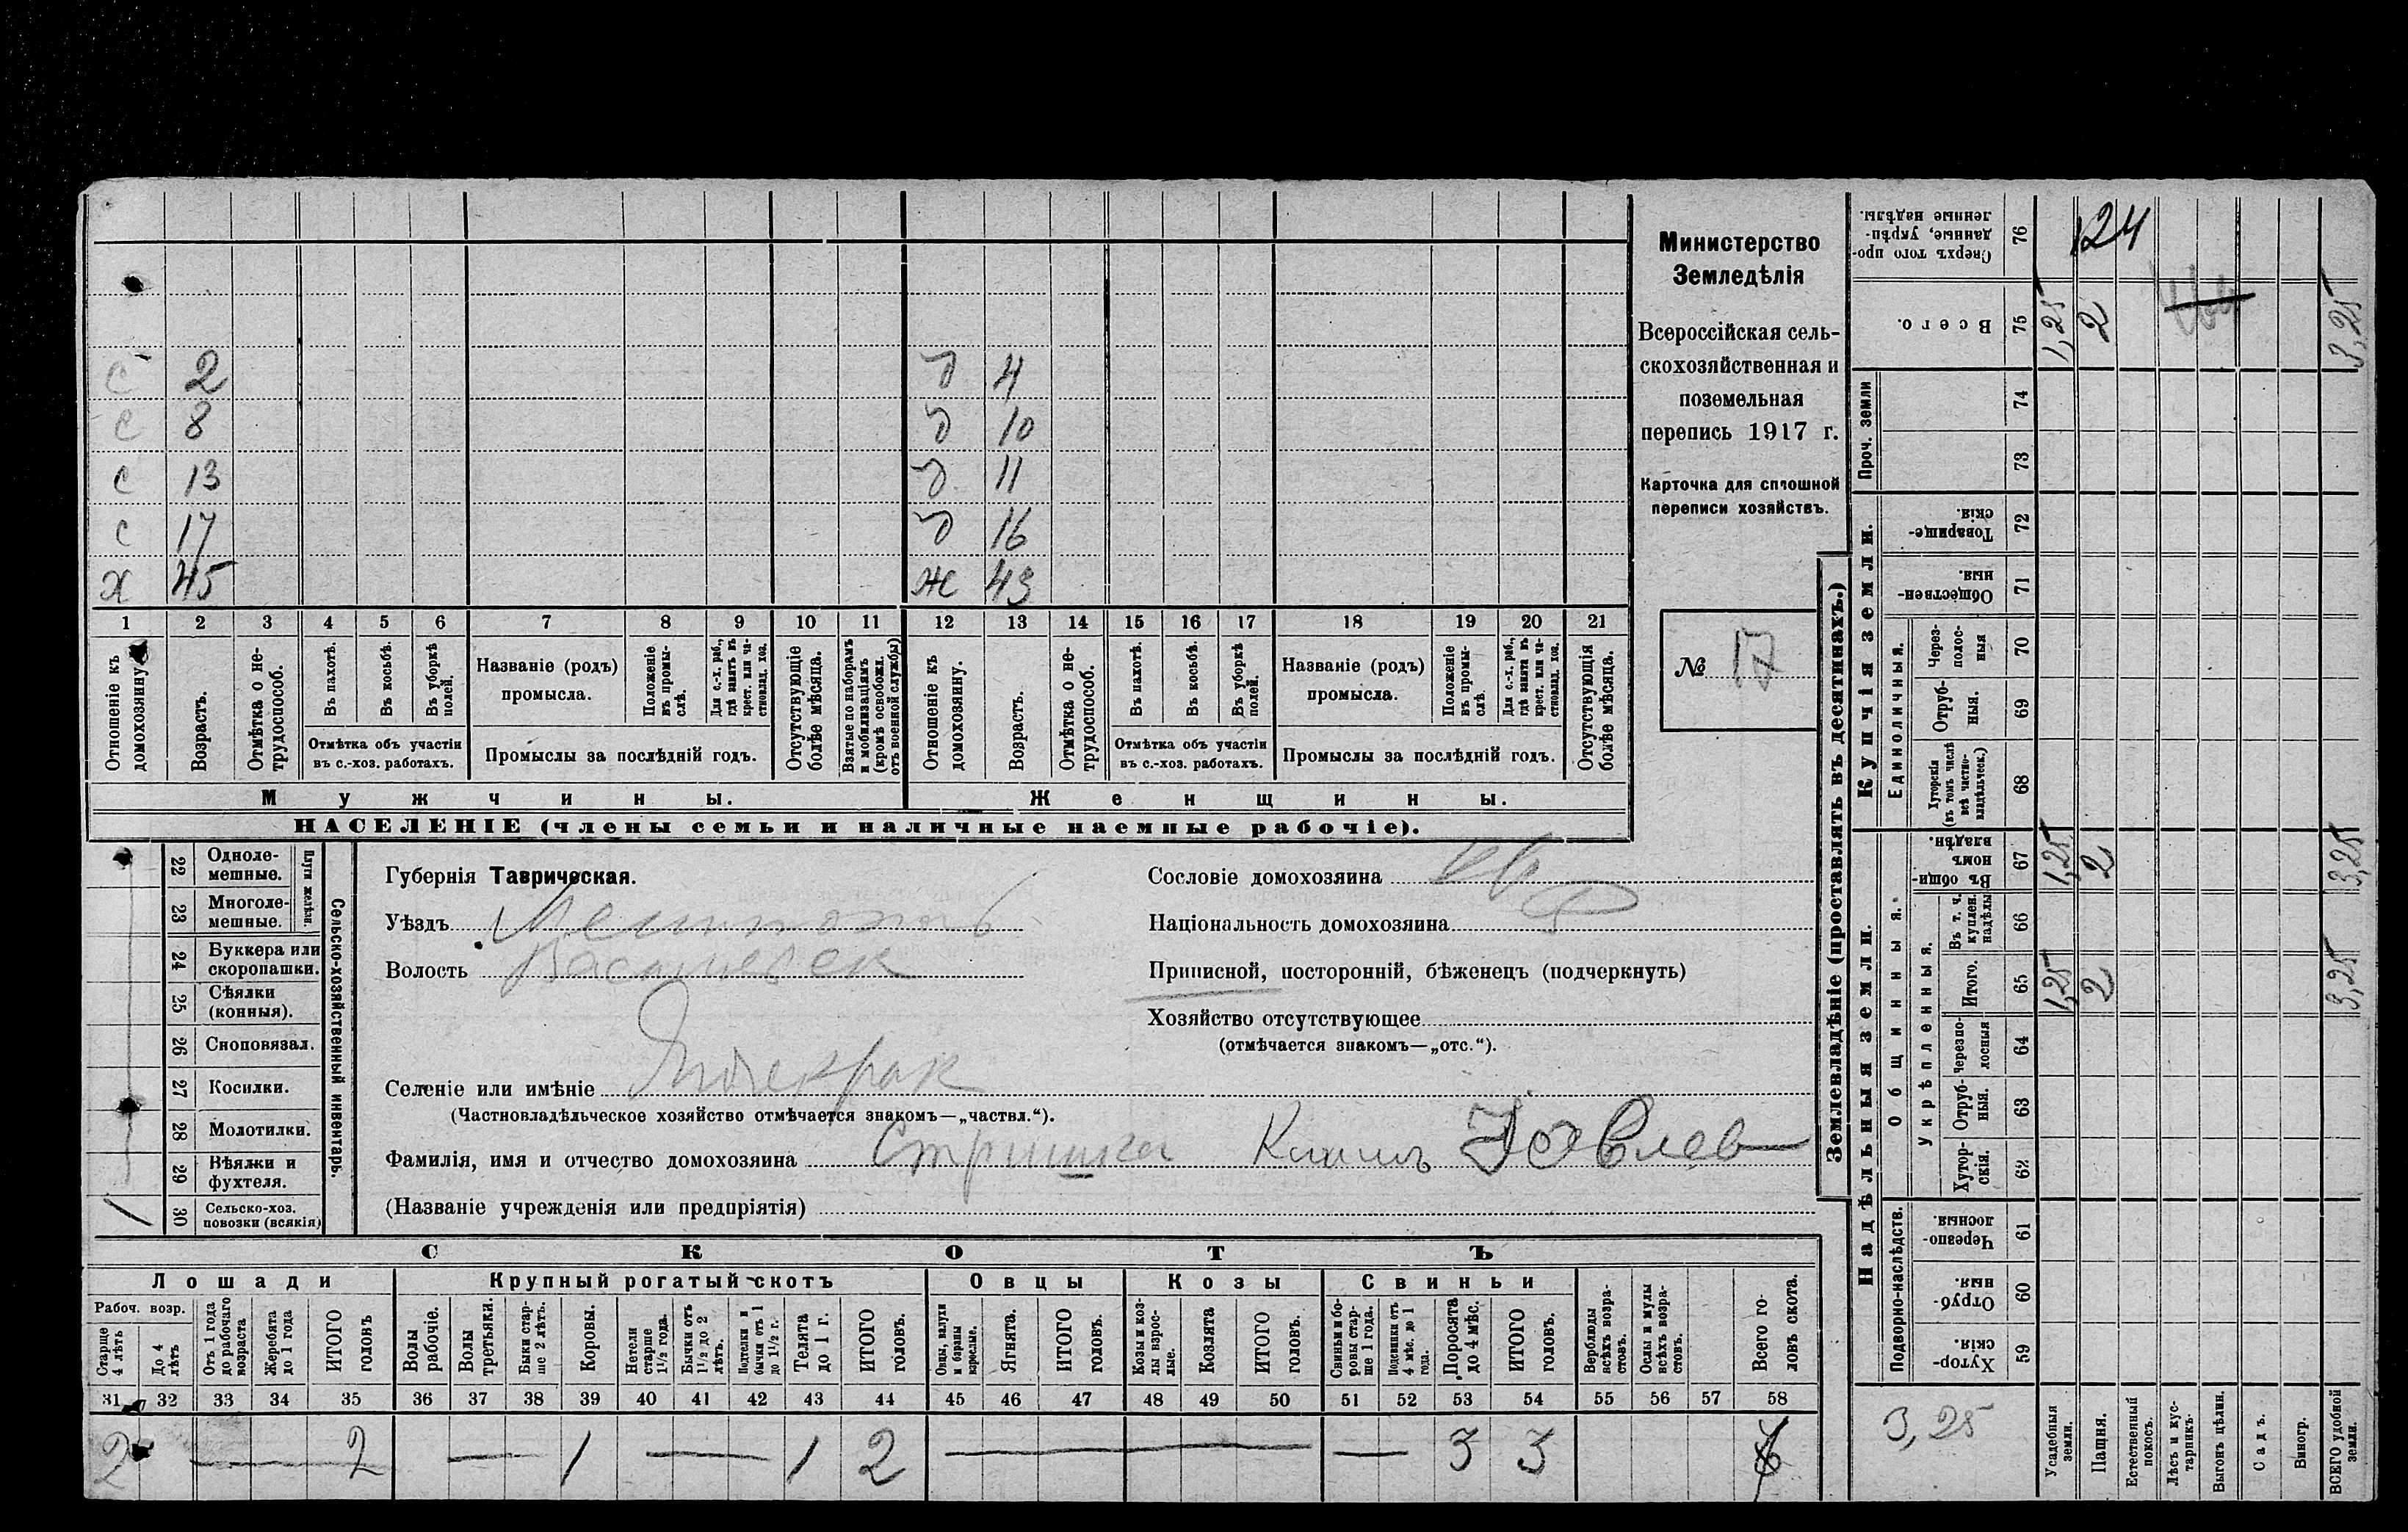 С 2 д 4
С 8 д 10
С 13 д 11
С 17 д 16
Х 45 Ж 43
1 2 3 4 5 6 7 8 9 10 11 12 13 14 15 16 17 18 19 20 21
Отношеніе къ домохозяину.
Возрастъ.
Отмѣтка о не-трудоспособ.
Въ пахотѣ.
Въ косьбѣ.
Въ уборкѣ полей.
Отмѣтка объ участіи въ с.-хоз. работахъ.
Названіе (родъ) промысла.
Положеніе въ промы-слѣ.
Для с.-х. раб., гдѣ занятъ въ крест. или ча-стновлад. хоз.
Промыслы за послѣдній годъ.
Отсутствующіе болѣе мѣсяца.
Взятые по наборамъ и мобилизаціямъ (кромѣ освобожд. отъ военной службы)
Отношеніе къ домохозяину.
Возрастъ.
Отмѣтка о не-трудоспособ.
Въ пахотѣ.
Въ косьбѣ.
Въ уборкѣ полей.
Отмѣтка объ участіи въ с.-хоз. работахъ.
Названіе (родъ) промысла.
Положеніе въ промы-слѣ.
Для с.-х. раб., гдѣ занята въ крест. или ча-стновлад. хоз.
Промыслы за послѣдній годъ.
Отсутствующія болѣе мѣсяца.
Мужчины. Женщины.
НАСЕЛЕНІЕ (члены семьи и наличные наемные рабочіе).
Министерство
Земледѣлія
Всероссійская сель-
скохозяйственная и
поземельная
перепись 1917 г.
Карточка для сплошной
переписи хозяйствъ.
№ 17
22 Одноле-мешные.
23 Многоле-мешные.
Плуги желѣзн.
24 Буккера или скоропашки.
25 Сѣялки (конныя).
26 Сноповязал.
27 Косилки.
28 Молотилки.
29 Вѣялки и фухтеля.
1 30 Сельско-хоз. повозки (всякія)
Сельско-хозяйственный инвентарь.
Губернія Таврическая.
Уѣздъ Мелитополь
Волость Васильевск
Селеніе или имѣніе
(Частновладѣльческое хозяйство отмѣчается знакомъ—„частвл.“).
Фамилія, имя и отчество домохозяина Яковлев
(Названіе учрежденія или предпріятія)
Сословіе домохозяина
Національность домохозяина
Приписной, посторонній, бѣженецъ (подчеркнуть)
Хозяйство отсутствующее
(отмѣчается знакомъ—„отс.“).
СКОТЪ
Лошади Крупный рогатый скотъ Овцы Козы Свиньи
Рабоч. возр.
Старше 4 лѣтъ
До 4 лѣтъ
Отъ 1 года до рабочаго возраста
Жеребята до 1 года
ИТОГО головъ
Волы рабочіе.
Волы третьяки.
Быки стар-ше 2 лѣтъ.
Коровы.
Нетели старше 1½ года.
Бычки отъ 1½ до 2 лѣтъ.
Подтелки и бычки отъ 1 до 1½ г.
Телята до 1 г.
ИТОГО головъ.
Овцы, валухи и бараны взрослые.
Ягнята.
ИТОГО головъ.
Козы и коз-лы взрос-лые.
Козлята
ИТОГО головъ.
Свиньи и бо-ровы стар-ше 1 года.
Подсвинки отъ 4 мѣс. до 1 года.
Поросята до 4 мѣс.
ИТОГО головъ.
Верблюды всѣхъ возра-стовъ.
Ослы и мулы всѣхъ возра-стовъ.
Всего го-ловъ скота.
31 32 33 34 35 36 37 38 39 40 41 42 43 44 45 46 47 48 49 50 51 52 53 54 55 56 57 58
2 — 2 — 1 — 1 2 — — 3 3
Землевладѣніе (проставлять въ десятинахъ.)
Надѣльныя земли. Купчія земли. Проч. земли
Подворно-наслѣдств. Общинныя. Единоличныя.
Укрѣпленныя.
Сверхъ того про-данные, укрѣп-ленные надѣлы. 76 124
Всего. 75 1,25 2 3,25
74
73
Товарище-скія. 72
Обществен-ныя. 71
Через-полос-ныя 70
Отруб-ныя. 69
Хуторскія (въ томъ числѣ всѣ частно-владѣльческ.) 68
Въ общин-номъ владѣн. 67 1,25 2 3,25
Въ т. ч. куплен. надѣлы 66
Итого. 65 1,25 2 3,25
Черезпо-лосныя 64
Отруб-ныя. 63
Хутор-скія. 62
Черезпо-лосныя. 61
Отруб-ныя. 60
Хутор-скія 59
3,25
Усадебныя земли.
Пашня.
Естественный покосъ.
Лѣсъ и кус-тарникъ.
Выгонъ цѣлин.
Садъ.
Виногр.
ВСЕГО удобной земли.